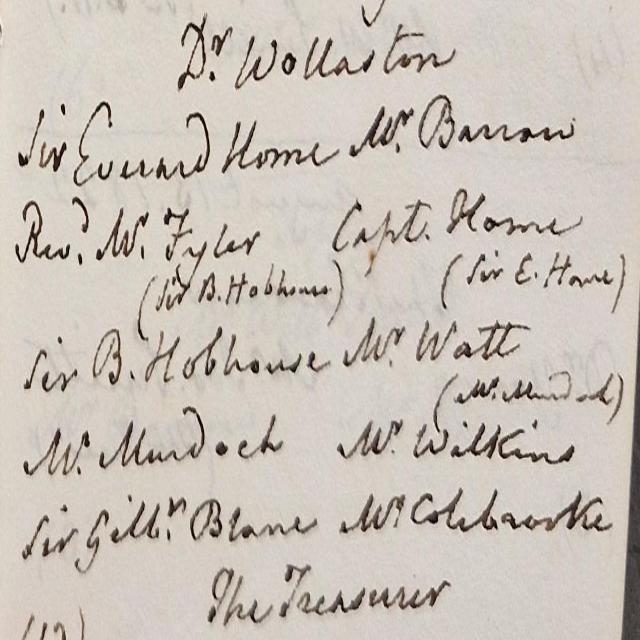 Dr. Wollaston
Sir Everard Home Mr. Barrow
Revd. Mr. Fyler Capt. Home
(Sir B. Hobhouse) (Sir E. Home)
Sir B. Hobhouse Mr. Watt
(Mr. Murdoch)
Mr. Murdoch Mr. Wilkins
Sir Gilbt. Blane Mr. Colebrooke
The Treasurer
(12)